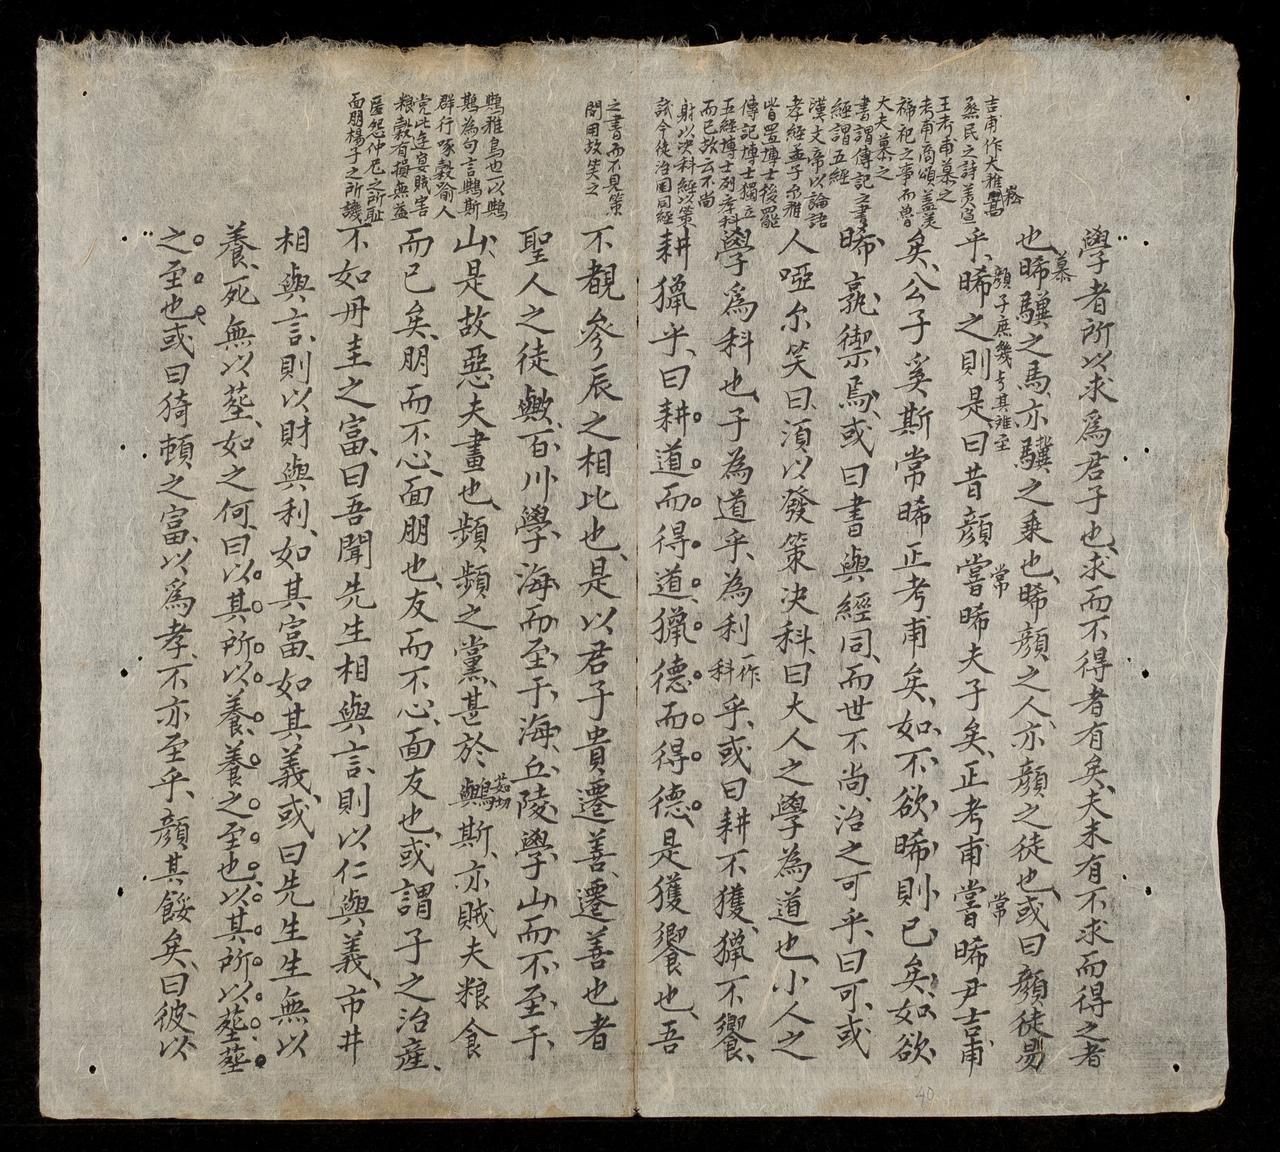 吉甫作大雅嵩
崧
烝民之詩美宣
王考甫慕之
考甫商頌蓋美
禘祀之事而魯
大夫慕之
書謂傳記之書
經謂五經
漢文帝以論語
孝經孟子尒雅
皆置博士後罷
傳記博士獨立
五經博士列孝科
而已故云不尚
射以決科經以策
試今徒治同同經
之書而不見策
問用故笑之
鷽雅烏也一以鷽
鷽為句言鷽斯
群行啄穀喻人
党比連宴賊害
粮穀有損無益
匿怨仲尼之所恥
面朋楊子之所譏
學者所以求爲君子也求而不得者有矣夫未有不求而得之者
慕
也晞驥之馬亦驥之乗也晞顔之人亦顔之徒也或曰顔徒易
顔子庶幾与其難至 常 常
乎晞之則是曰昔顔嘗晞夫子矣正考甫嘗晞尹吉甫
矣公子奚斯常晞正考甫矣如不欲晞則已矣如欲
晞孰禦焉或曰書與經同而世不尚治之可乎曰可或
人啞尒笑曰湏以發策决科曰大人之學為道也小人之
學爲科也子為道乎為利一作科乎或曰耕不獲獵不饗
耕獵乎曰耕道而得道獵德而得德是獲饗也吾
不覩參辰之相比也是以君子貴遷善遷善也者
聖人之徒歟百川學海而至于海丘陵學山而不至于
山是故惡夫畫也頻頻之黨甚於鷽茹切斯亦賊夫粮食
而已矣朋而不心面朋也友而不心面友也或謂子之治産
不如丹圭之富曰吾聞先生相與言則以仁與義市井
相與言則以財與利如其富如其義或曰先生生無以
養死無以塟如之何曰以其所以養養之至也以其所以塟塟
之至也或曰猗頓之富以爲孝不亦至乎顔其餒矣曰彼以
40